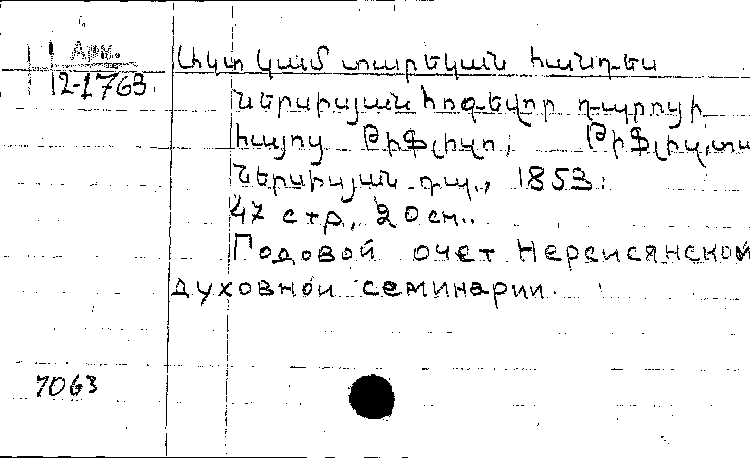 Арм.
12-1763
Ակտ կամ տարեկան հանդես
Ներսիսյան հոգևոր դպրոցի
հայոց Թիֆլիզո, Թիֆլիզ, տպ
Ներսիսյան դպ., 1853.
47 стр, 20 см..
Годовой очет Нерсисянской
духовной семинарии.
7063